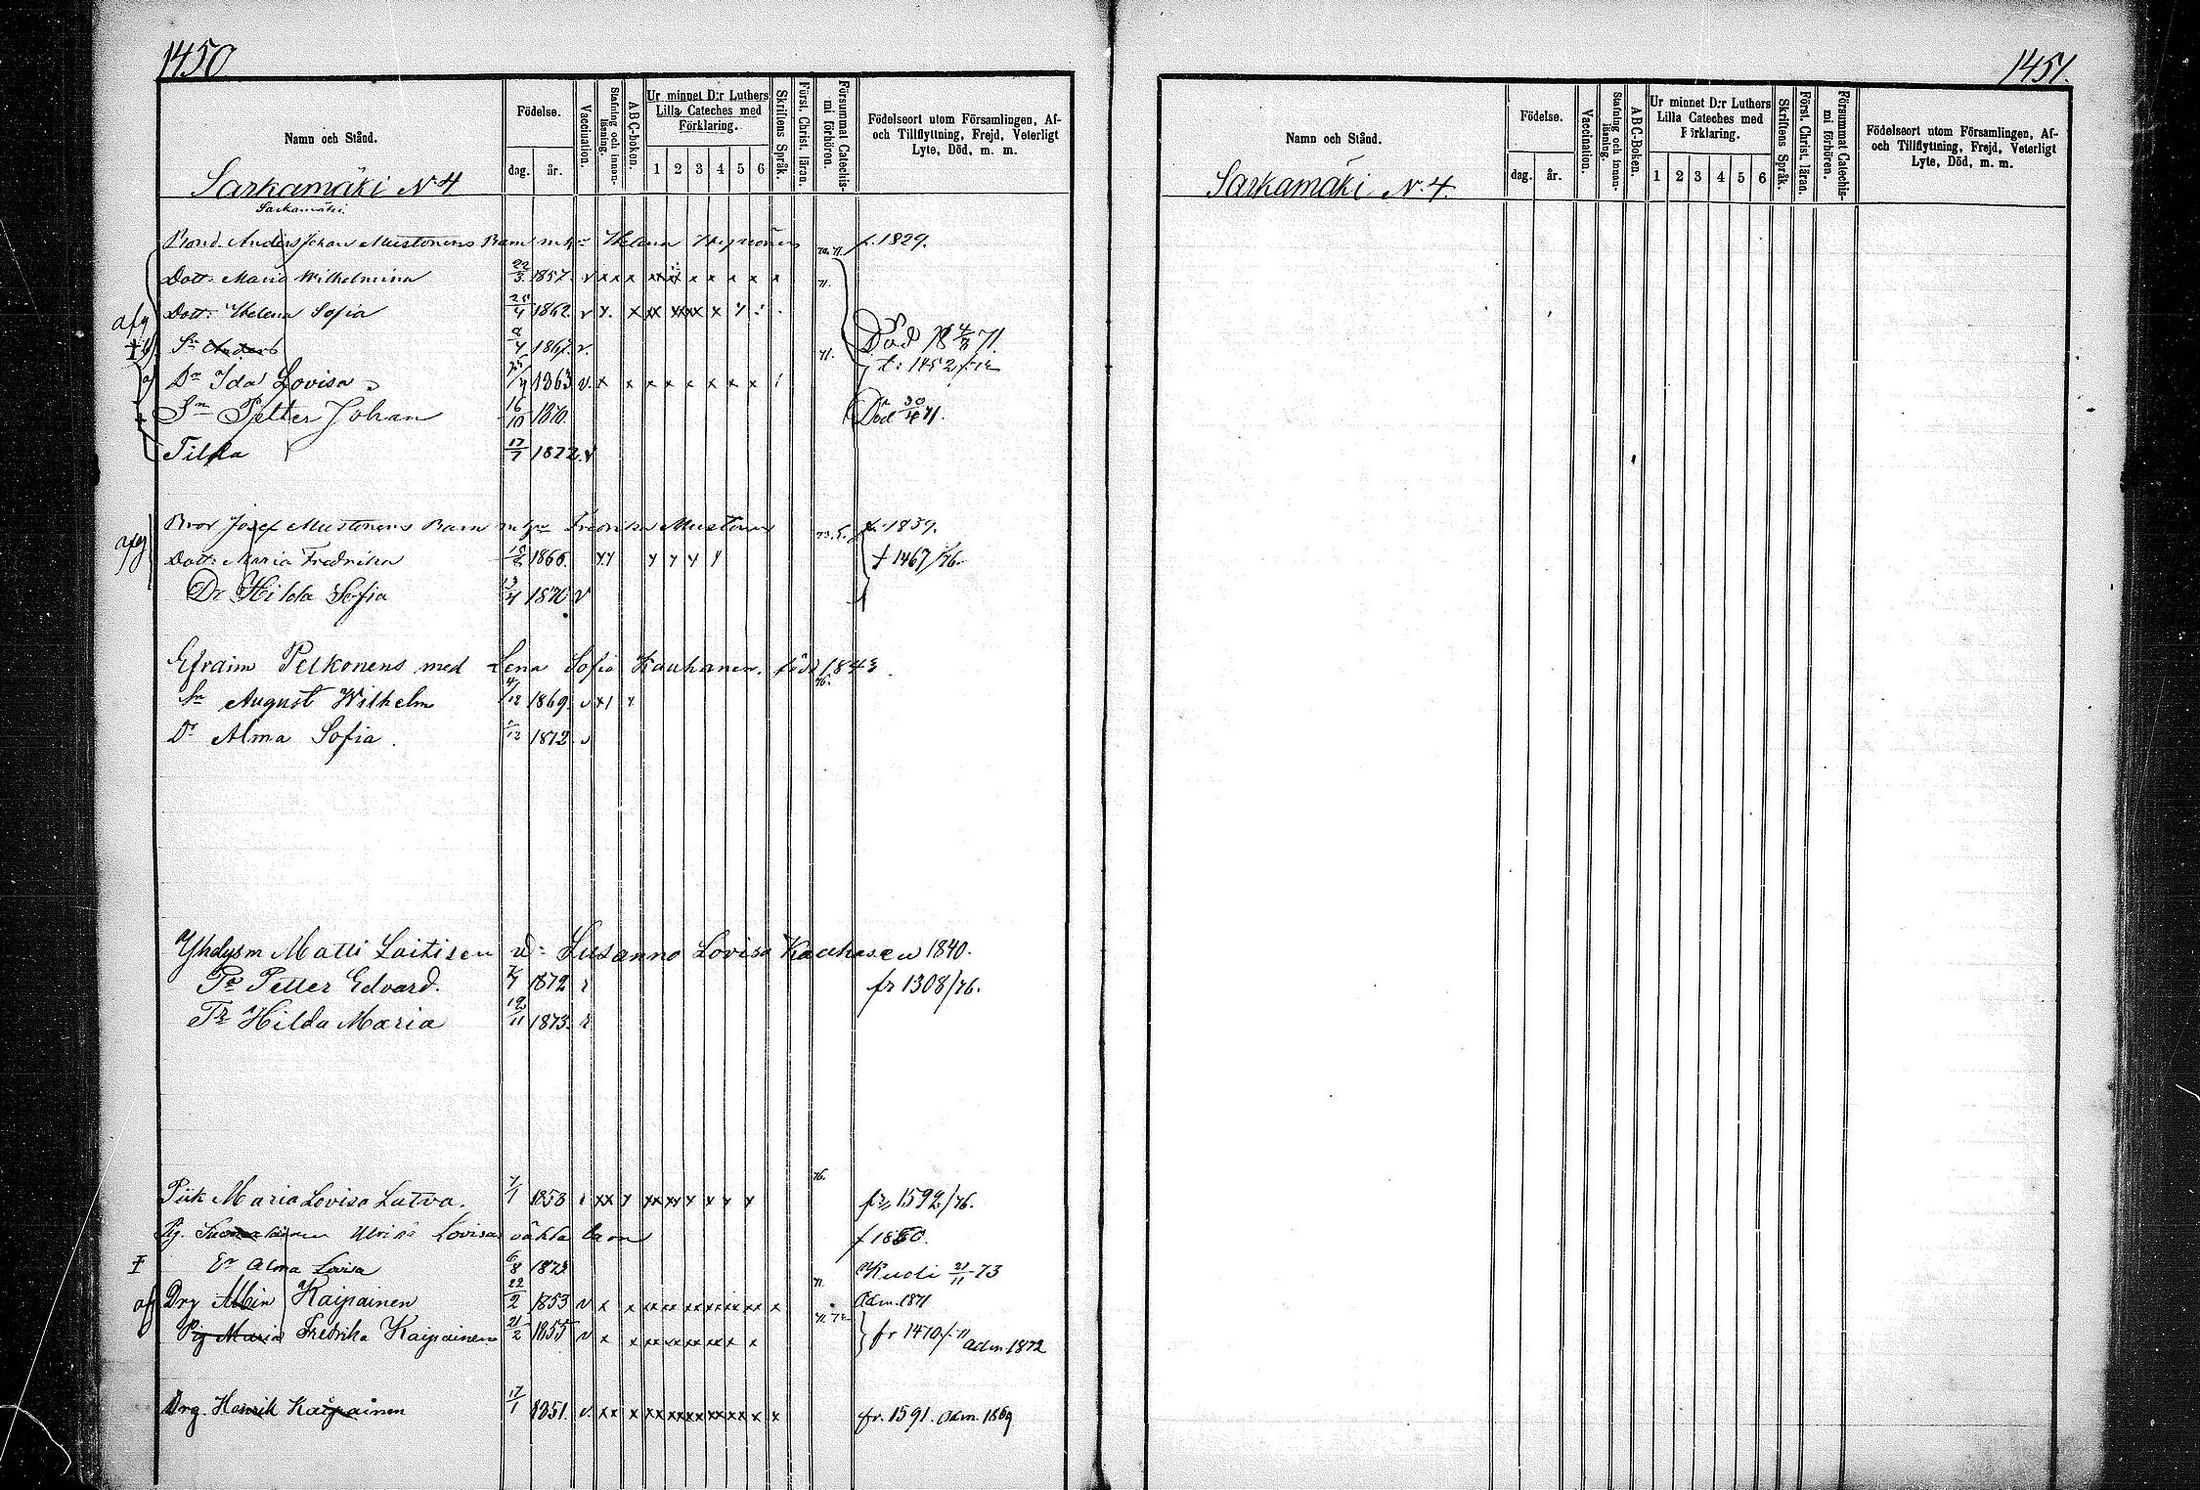 1450
Namn och Stånd.
Födelse.
dag. år.
Vaccination.
Stafning och innanläsning.
ABC-boken.
Ur minnet D:r Luthers Lilla Cateches med Förklaring.
1 2 3 4 5 6
Skriftens Språk.
Först. Christ. läran.
Försummat Catechismi förhören.
Födelseort utom Församlingen, Af- och Tillflyttning, Frejd, Veterligt Lyte, Död, m. m.
Sarkamäki N 4
Sarkamäki
Bond. Anders Johan Mustonens Barn m. h. Helena f. 1829.
70. 71.
Dott. Maria Wilhelmina 22/3 1857. v x x x x x x x x x x 71.
Dott: Helena Sofia 25/4 1862. v
Sn Anders 1867. v. 71. Död 18 4/3 71.
Da Ida Lovisa 1863 v. x x x x x x x x t: 1452
Sn Petter Johan 16/10 1870. Död 30/4 71.
Tilda 17/7 1872. v
Bror Josef Mustonens Barn m. h. Fredrika Mustonen f. 1839.
Dott: Maria Fredrika 1866. † 1467/76.
Dr Hilda Sofia 13/4 1870 v
Efraim Pelkonens med Lena Sofia Kauhanen. född 1843
76.
Sn August Wilhelm 4/12 1869. v x 1
Dr Alma Sofia. 12 1872 v
Yhdysm Matti Laitisen v: Susanno Lovisa Kauhasen 1840.
Pa Petter Edvard. 1872 fr 1308/76.
Tr Hilda Maria 19/11 1873.
76.
Piik Maria Lovisa Latva. 7/1 1858 fr. 1592/76.
Pig. Ulrika Lovisa f 1850.
† Alma Lovisa 6/8 1873 Kuoli 21/11 73
af Drg Albin Kaipainen 22/2 1853 v x x xx xx xx xx xx xx x 71. Adm. 1871
Pig Maria Fredrika Kaipainen 21/2 1855 v x 71. 72 fr 1470/71 Adm. 1872
Drg. Henrik Kaipainen 17/1 1851. v. xx x xx xx xx xx x x x fr. 1591. Adm. 1869
1451.
Namn och Stånd.
Födelse.
dag. år.
Vaccination.
Stafning och innanläsning.
ABC-Boken.
Ur minnet D:r Luthers Lilla Cateches med Förklaring.
1 2 3 4 5 6
Skriftens Språk.
Först. Christ. läran.
Försummat Catechismi förhören.
Födelseort utom Församlingen, Af- och Tillflyttning, Frejd, Veterligt Lyte, Död, m. m.
Sarkamäki N. 4.